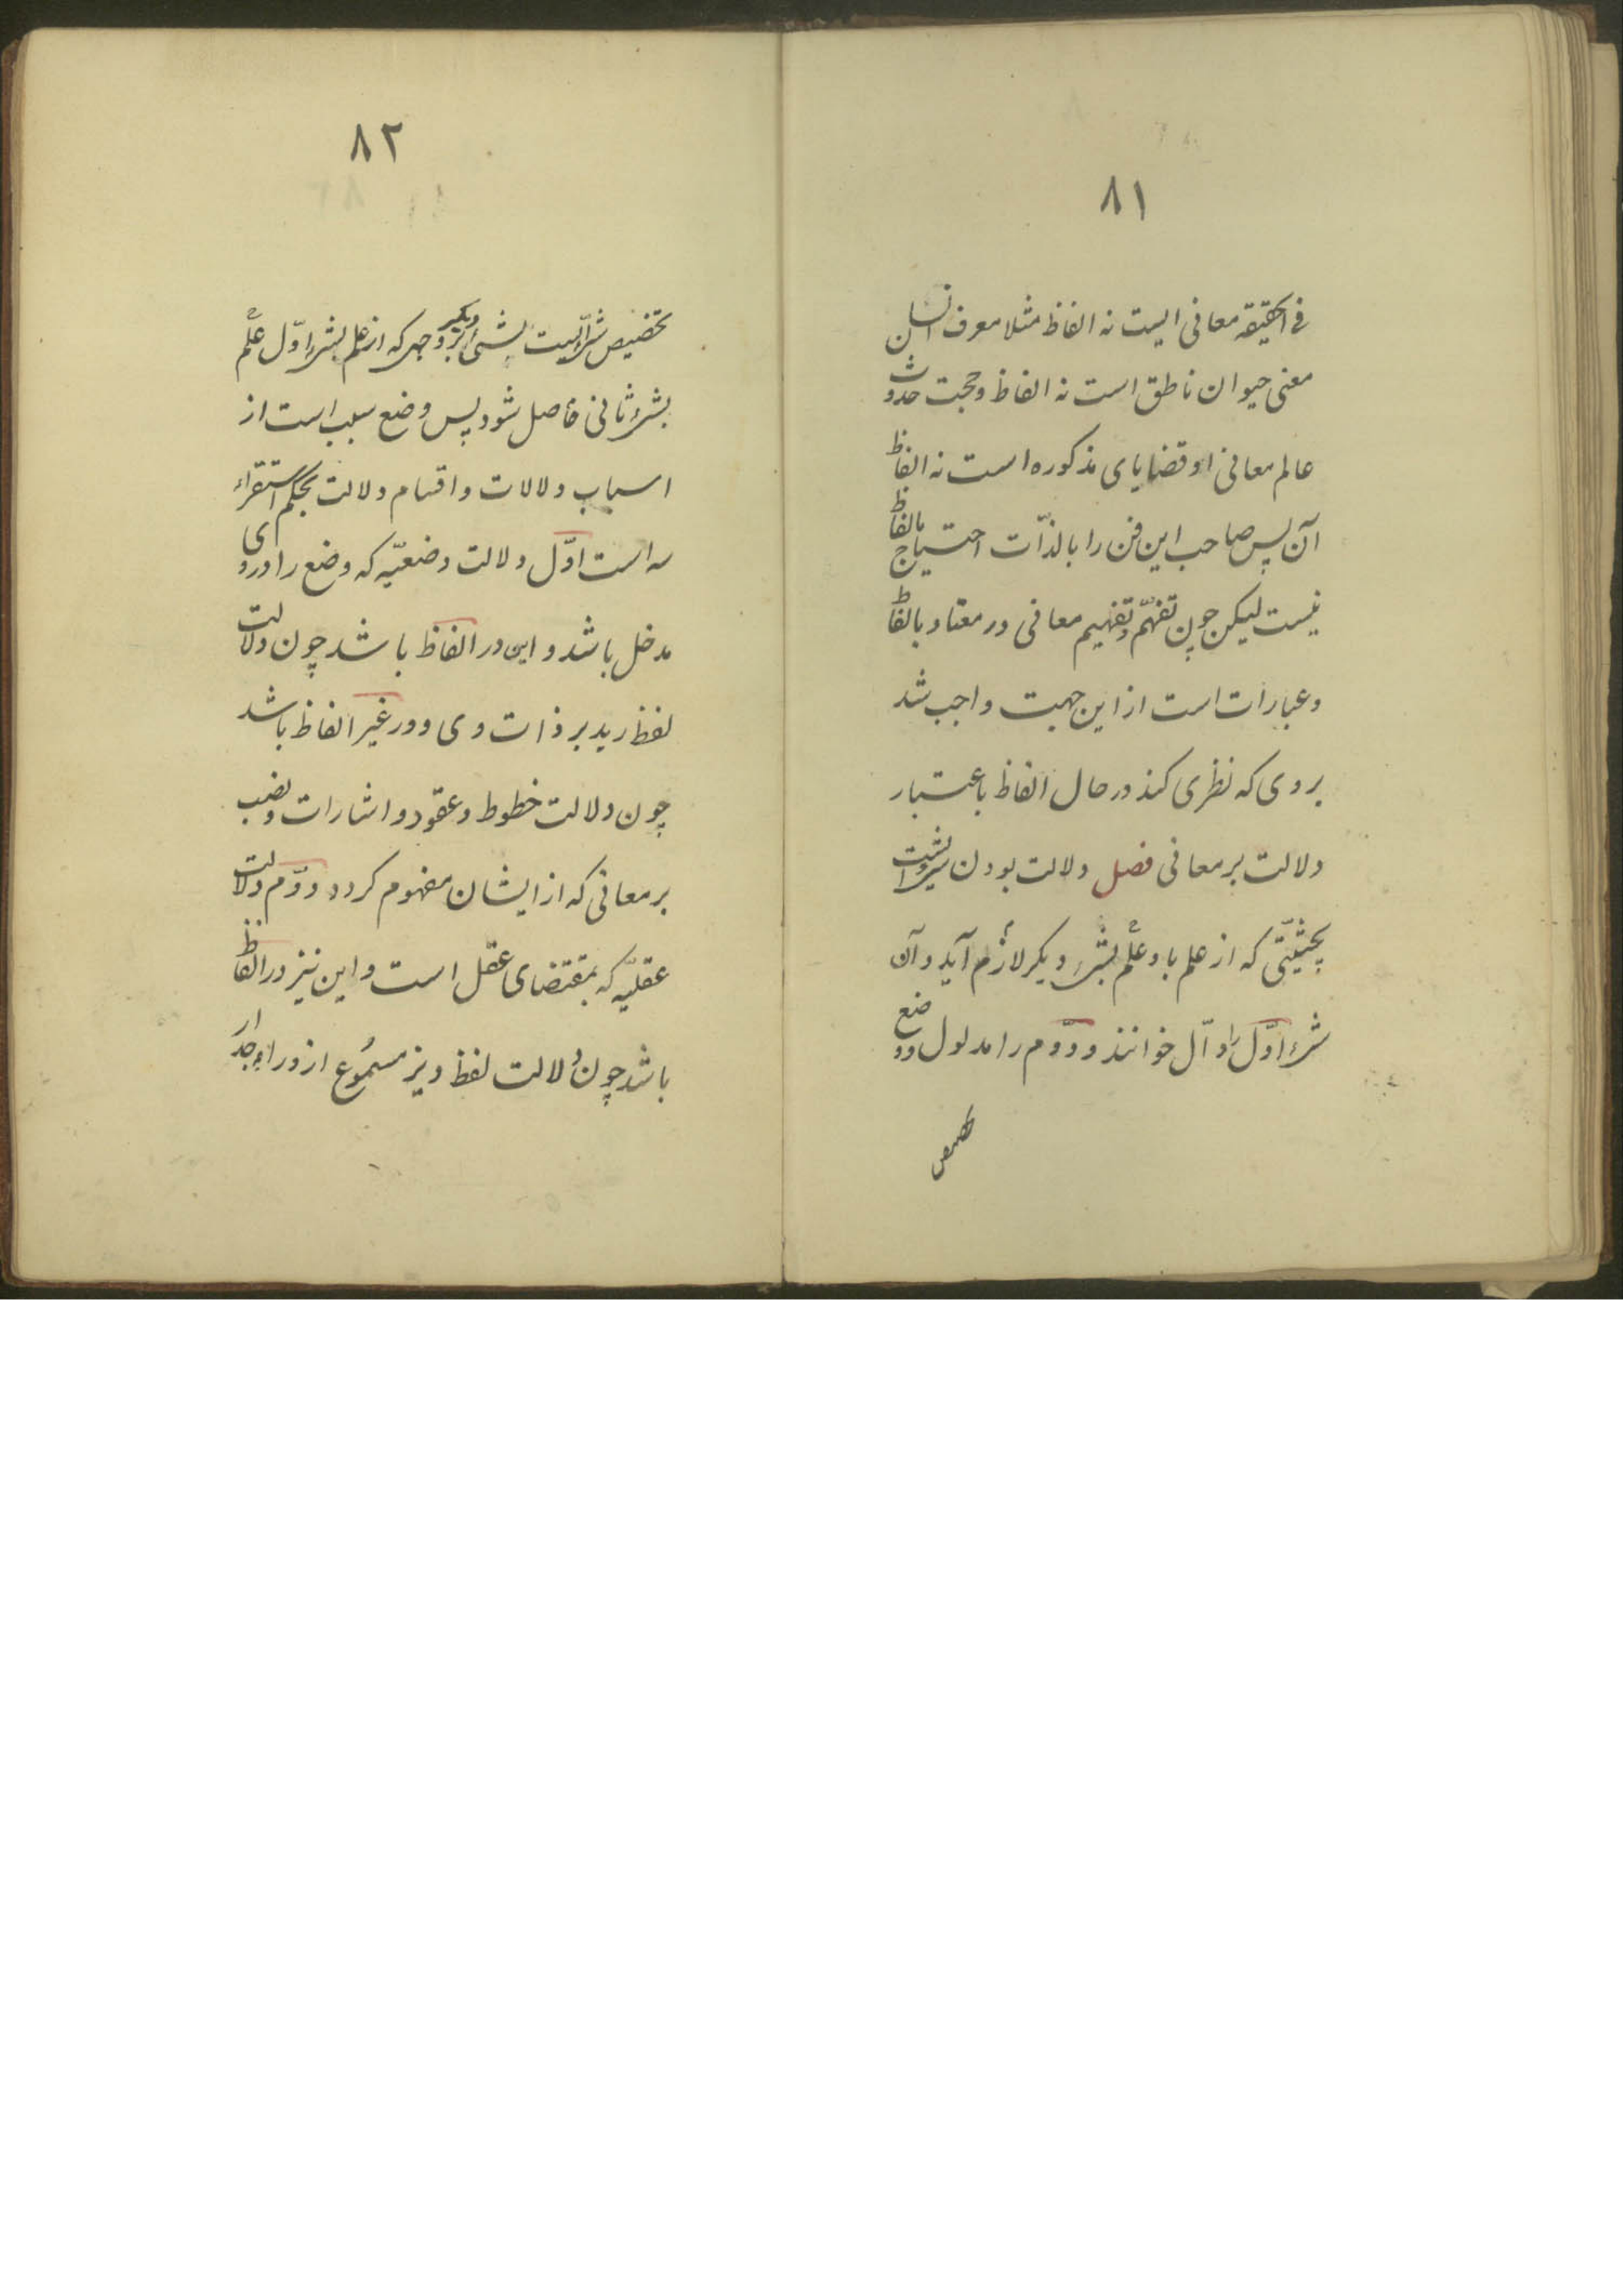 ٨١
فی الحقیقه معانی الیست نه الفاظ مثلا معرف انسان
معنی حیوان ناطق است نه الفاظ و حجت حدوث
عالم معانی او قضایای مذکوره است نه الفاظ
آن پس صاحب این فن را بالذّات احتیاج بالفاظ
نیست لیکن چون تفهّم و تفهیم معانی در معتاد بالفاظ
و عبارات است از این جهت واجب شد
بر وی که نظری کند در حال الفاظ باعتبار
دلالت بر معانی فصل دلالت بودن شیٔ است
بحیثیّتی که از علم باو علم بشیء دیگر لازم آید و آن
شیء اوّل را دالّ خوانند و دوّم را مدلول و وضع
تخصیص
٨٢
تخصیص شیٔ است بشیٔ دیگر بر وجهی که از علم بشیء اوّل علم
بشیء ثانی حاصل شود پس وضع سبب است از
اسباب دلالات و اقسام دلالت بحکم استقراء
سه است اوّل دلالت وضعیّه که وضع را در وی
مدخل باشد و این در الفاظ باشد چون دلالت
لفظ زید بر ذات وی و در غیر الفاظ باشد
چون دلالت خطوط و عقود و اشارات و نصب
بر معانی که از ایشان مفهوم کردد دوّم دلالت
عقلیّه که بمقتضای عقل است و این نیز در الفاظ
باشد چون دلالت لفظ دیز مسموع از وراء جدار